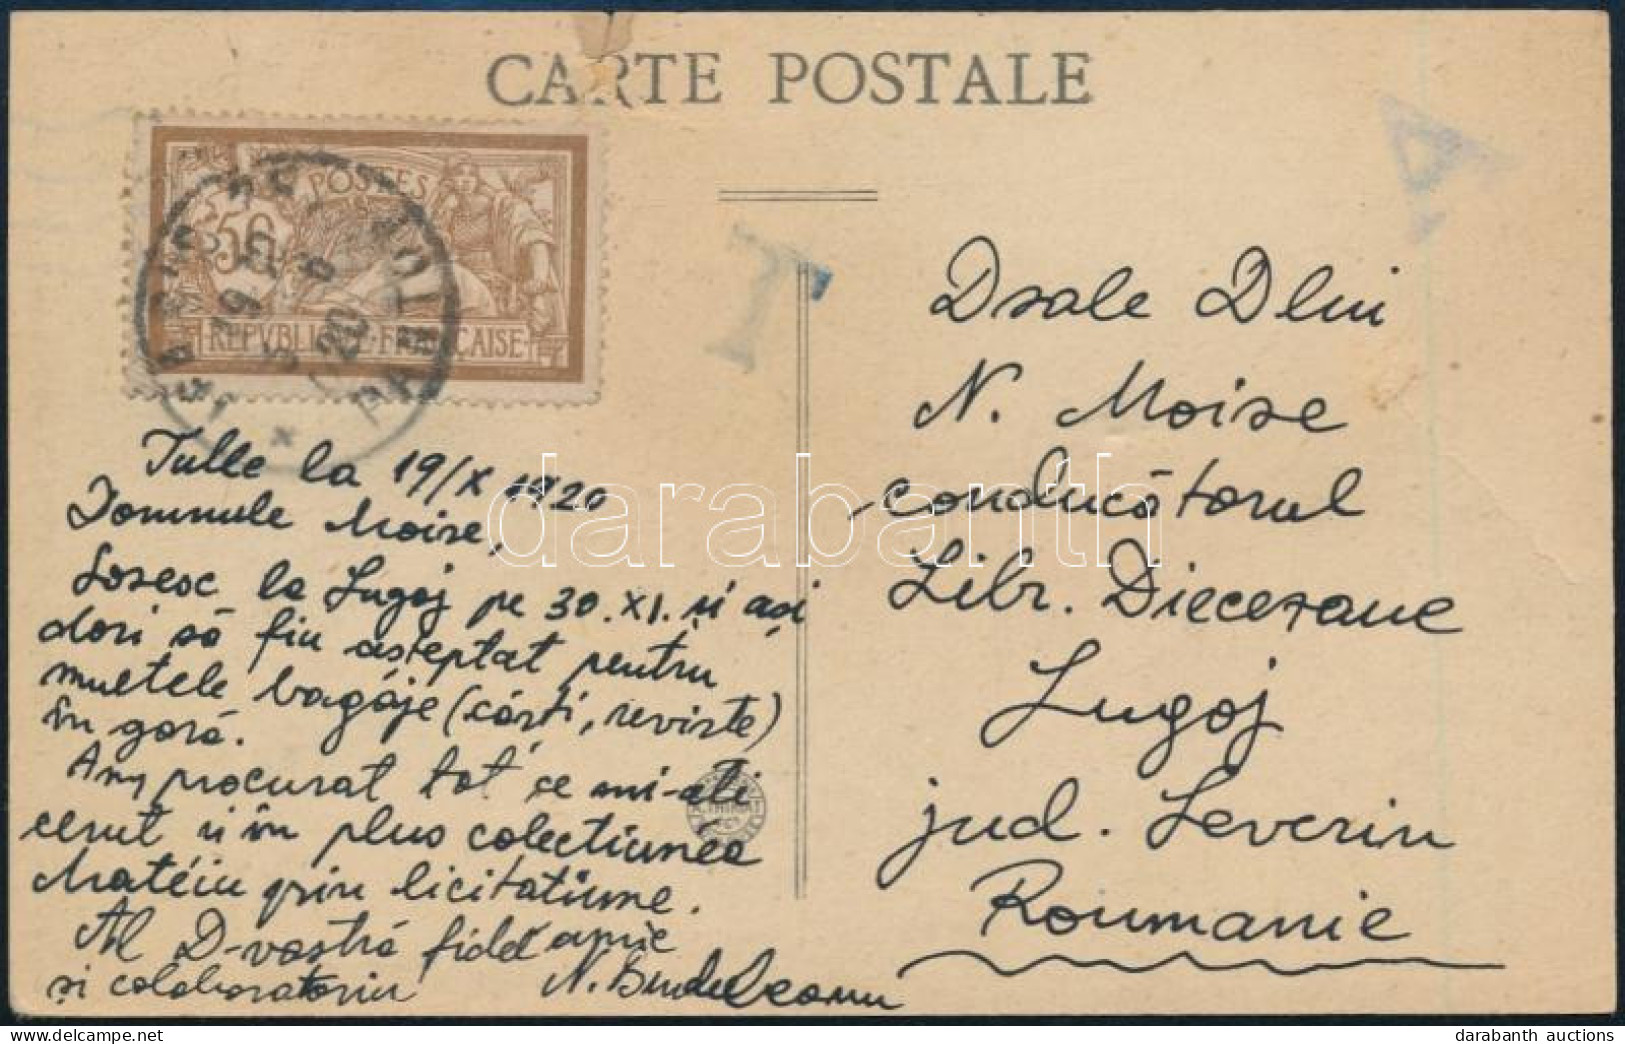 CARTE POSTALE
POSTES
50
REPVBLIQUE FRANÇAISE
19
20
T
Tulle la 19/X 1920
Domnule Moise,
Sosesc la Lugoj pe 30.XI. și ași
dori să fiu așteptat pentru
multele bagaje (cărți, reviste)
în gară.
Am procurat tot ce mi-ați
cerut și în plus colecțiunea
Mateiu prin licitațiune.
Al D-vostră fidel amic
și colaborator
Dsale Dlui
N. Moise
conducătorul
Libr. Diecesane
Lugoj
jud. Severin
Roumanie
darabanth
darabanth auctions